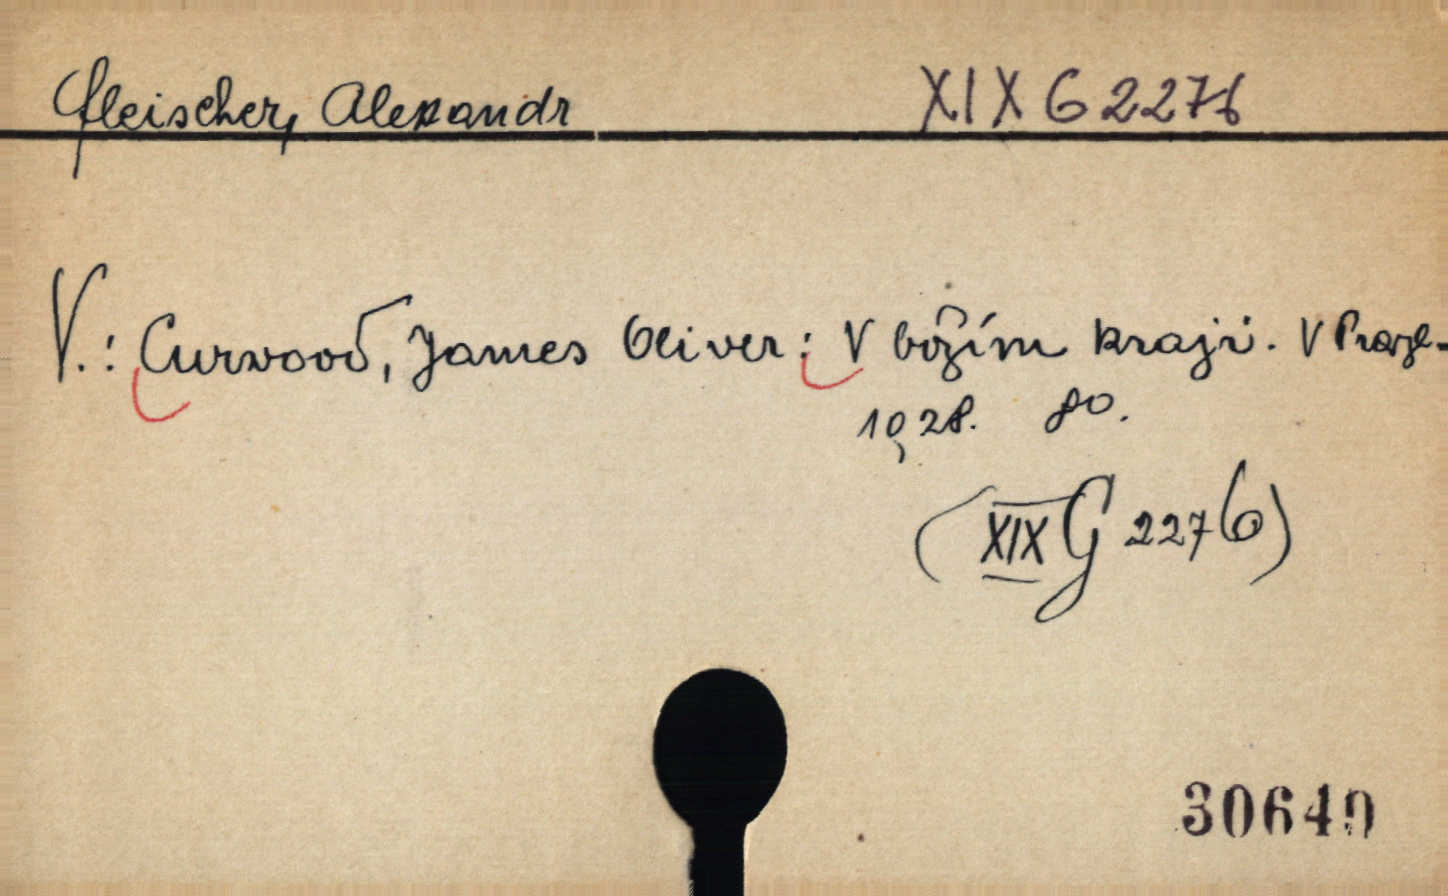 Fleischer, Alexandr XIX G 2276
V.: Curwood, James Oliver: V božím kraji. V Praze
1928. 8°.
(XIX G 2276)
30649